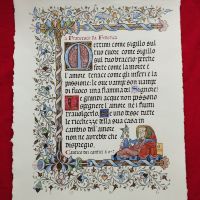 Mettimi come sigillo sul
tuo cuore, come sigillo
sul tuo braccio perché
forte come la morte è
l'amore tenace come gli inferi è la
passione: le sue vampe son vampe
di fuoco una fiamma del Signore!
Le grandi acque non posso
spegnere l'amore, né i fiumi
travolgerlo. Se uno desse tutte
le ricchezze della sua casa in
cambio dell'amore
non ne avrebbe che
dispregio.
Cantico dei cantici